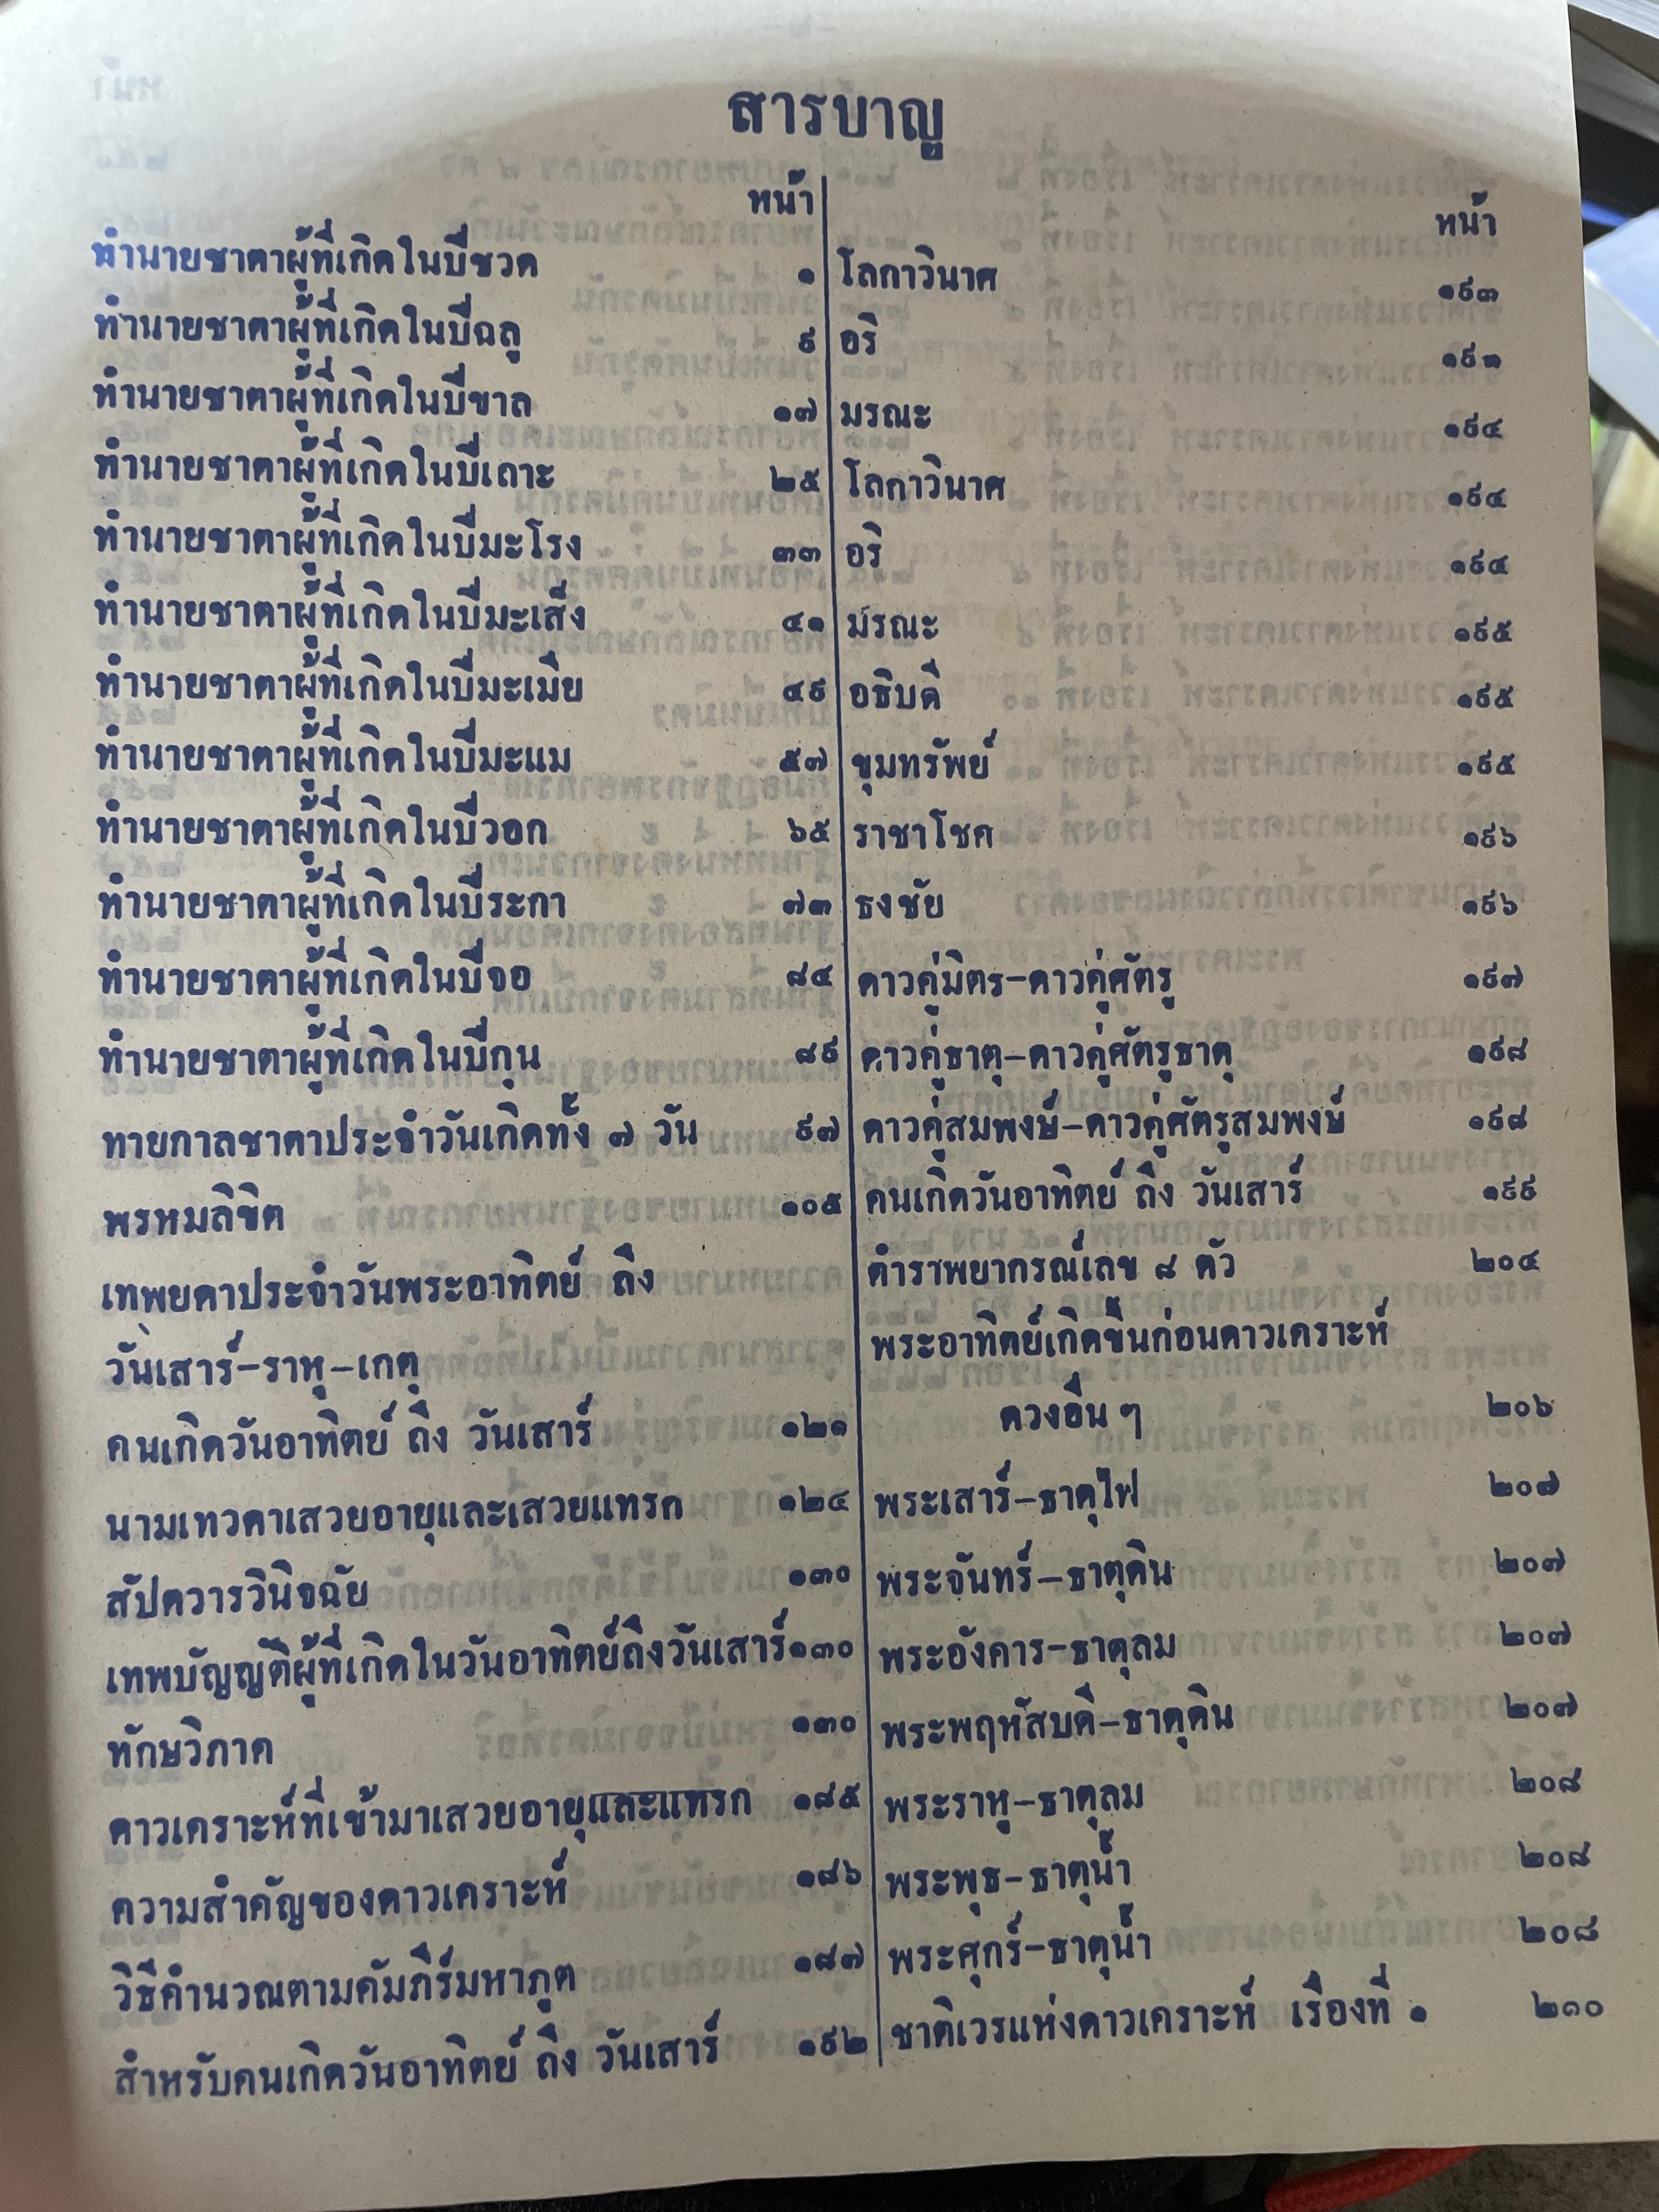 สารบาญ
หน้า
ทำนายชาตาผู้ที่เกิดในปีชวด ๑
ทำนายชาตาผู้ที่เกิดในปีฉลู ๙
ทำนายชาตาผู้ที่เกิดในปีขาล ๑๗
ทำนายชาตาผู้ที่เกิดในปีเถาะ ๒๕
ทำนายชาตาผู้ที่เกิดในปีมะโรง ๓๓
ทำนายชาตาผู้ที่เกิดในปีมะเส็ง ๔๑
ทำนายชาตาผู้ที่เกิดในปีมะเมีย ๔๙
ทำนายชาตาผู้ที่เกิดในปีมะแม ๕๗
ทำนายชาตาผู้ที่เกิดในปีวอก ๖๕
ทำนายชาตาผู้ที่เกิดในปีระกา ๗๓
ทำนายชาตาผู้ที่เกิดในปีจอ ๘๔
ทำนายชาตาผู้ที่เกิดในปีกุน ๘๙
ทายกาลชาตาประจำวันเกิดทั้ง ๗ วัน ๙๗
พรหมลิขิต ๑๐๕
เทพยดาประจำวันพระอาทิตย์ ถึง
วันเสาร์-ราหู-เกตุ
คนเกิดวันอาทิตย์ ถึง วันเสาร์ ๑๒๑
นามเทวดาเสวยอายุและเสวยแทรก ๑๒๔
สัปตวารวินิจฉัย ๑๓๐
เทพบัญญัติผู้ที่เกิดในวันอาทิตย์ถึงวันเสาร์ ๑๓๐
ทักษวิภาค ๑๓๐
ดาวเคราะห์ที่เข้ามาเสวยอายุและแทรก ๑๘๕
ความสำคัญของดาวเคราะห์ ๑๘๖
วิธีคำนวณตามคัมภีร์มหาภูต ๑๘๗
สำหรับคนเกิดวันอาทิตย์ ถึง วันเสาร์ ๑๙๒
หน้า
โลกาวินาศ ๑๙๓
อริ ๑๙๓
มรณะ ๑๙๔
โลกาวินาศ ๑๙๔
อริ ๑๙๔
มรณะ ๑๙๕
อธิบดี ๑๙๕
ขุมทรัพย์ ๑๙๕
ราชาโชค ๑๙๖
ธงชัย ๑๙๖
ดาวคู่มิตร-ดาวคู่ศัตรู ๑๙๗
ดาวคู่ธาตุ-ดาวคู่ศัตรูธาตุ ๑๙๘
ดาวคู่สมพงษ์-ดาวคู่ศัตรูสมพงษ์ ๑๙๘
คนเกิดวันอาทิตย์ ถึง วันเสาร์ ๑๙๙
ตำราพยากรณ์เลข ๘ ตัว ๒๐๔
พระอาทิตย์เกิดขึ้นก่อนดาวเคราะห์
ดวงอื่น ๆ ๒๐๖
พระเสาร์-ธาตุไฟ ๒๐๗
พระจันทร์-ธาตุดิน ๒๐๗
พระอังคาร-ธาตุลม ๒๐๗
พระพฤหัสบดี-ธาตุดิน ๒๐๗
พระราหู-ธาตุลม ๒๐๘
พระพุธ-ธาตุน้ำ ๒๐๘
พระศุกร์-ธาตุน้ำ ๒๐๘
ชาติเวรแห่งดาวเคราะห์ เรื่องที่ ๑ ๒๑๐